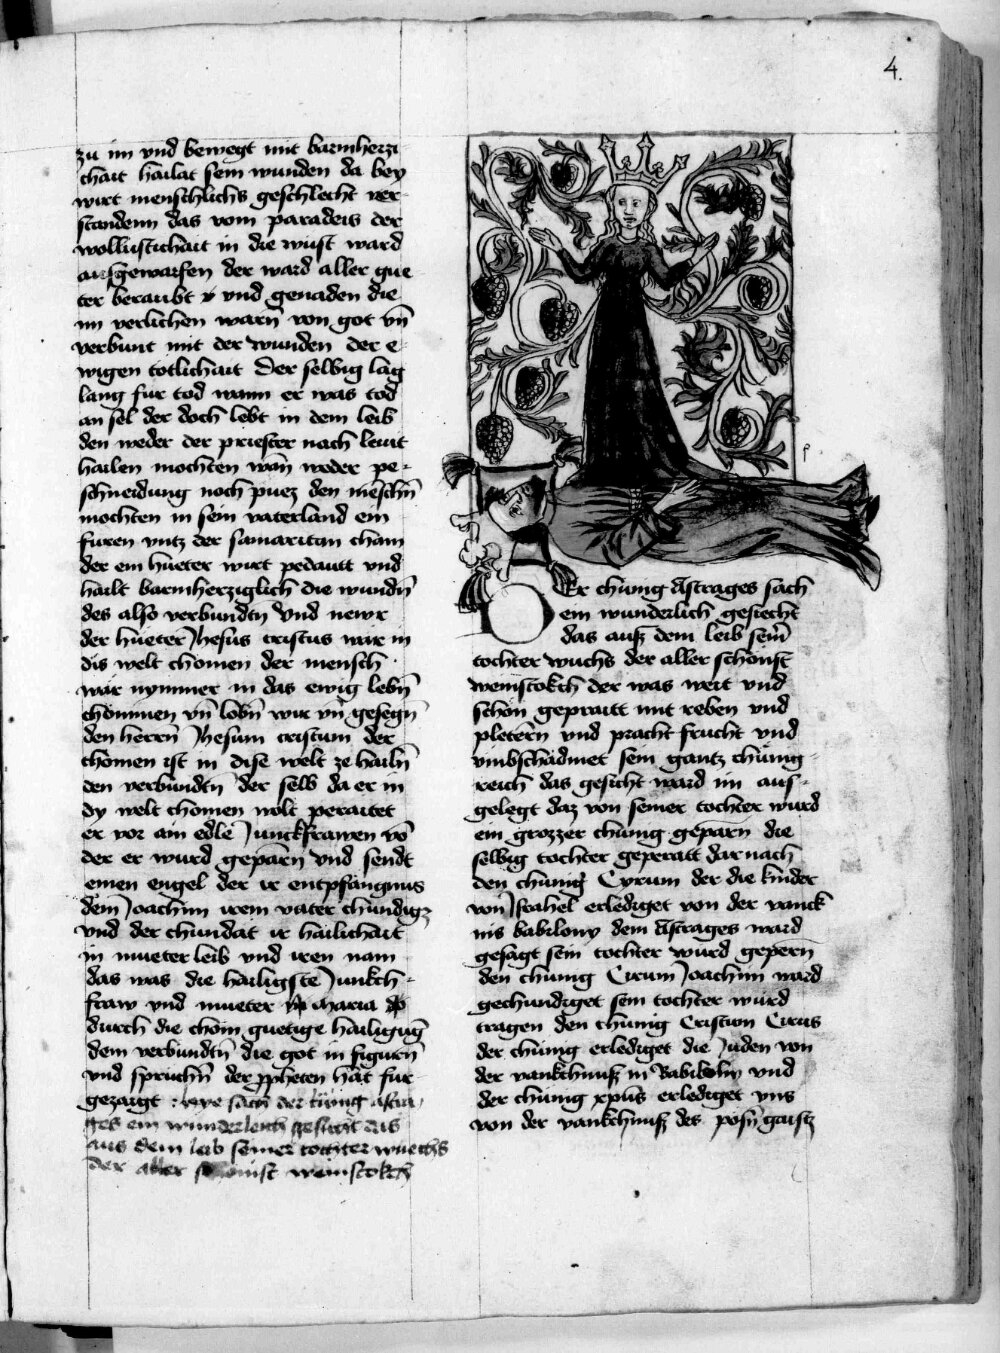 4.
zu im vnd bewegt mit barmherzi
chait hailat sein wunden da bey
wirt menschlichs geschlecht ver-
standenn das vom paradeis der
wollustichait in die wust ward
ausgewarfen der ward aller gue-
ter beraubt vnd genaden die
im verlichen warn von got vn̄
verbunt mit der wunden der e-
wigen totlichait Der selbig lag
lang fur tod wann er was tod
an sel der doch lebt in dem leib
den weder der priester nach levit
hailen mochten wan̄ weder pe-
schneidung noch puez den menschn̄
mochten in sein vaterland ein
furen vntz der samaritan cham
der ein hueter wirt pedautt vnd
hailt barmherziglich die wundn̄
des also verbundtn̄ Vnd newr
der hueter Jhesus cristus war in
dis welt chomen der mensch
wär nymmer in das ewig lebn̄
chommen vn̄ lobn̄ wir vn̄ gesegn̄
den herrn̄ Jhesum cristum der
chomen ist in dise welt ze hailn̄
den verbundtn̄ der selb da er in
dy welt chomen wolt peraitet
er vor ain edle Junckfrawen vō
der er wurd geparn̄ Vnd sendt
einen engel der ir entpfangnus
dem Joachim irem vater chundigz
vnd der chundat ir hailichait
in mueter leib vnd iren nam
das was die hailigste Junkch-
fraw vnd mueter maria
durch die chom guetige hailigūg
dem verbundtn̄ die got in figurn̄
vnd spruchn̄ der ppheten hat fur-
gezaigt : wye sach der kunig astra-
ges ein wunderleich gesicht das
aus dem leib seiner tochter wuechs
der aller schonist weinstokch
DEr chunig Astrages sach
ein wunderlich gesiecht
das auß dem leib sein̄
tochter wuchs der aller schonist
weinstokch der was weit vnd
schon gepraitt mit reben vnd
pletern vnd pracht frucht vnd
vmbschadmet sein gantz chunig-
reich das gesicht ward im aus-
gelegt daz von seiner tochter wurd
ein grozzer chunig geparn die
selbig tochter geperatt dar nach
den chunig Cyrum der die kinder
von Israhel erlediget von der vanck
nis babilony dem Astrages ward
gesagt sein tochter wurd gepern
den chunig Cirum Joachim ward
gechundiget sein tochter wurd
tragen den chunig Cristum Cirus
der chunig erlediget die Juden von
der vankchnuß in Babilony vnd
der chunig xpūs erlediget vns
von der vankchnuß des posn̄ gaistz